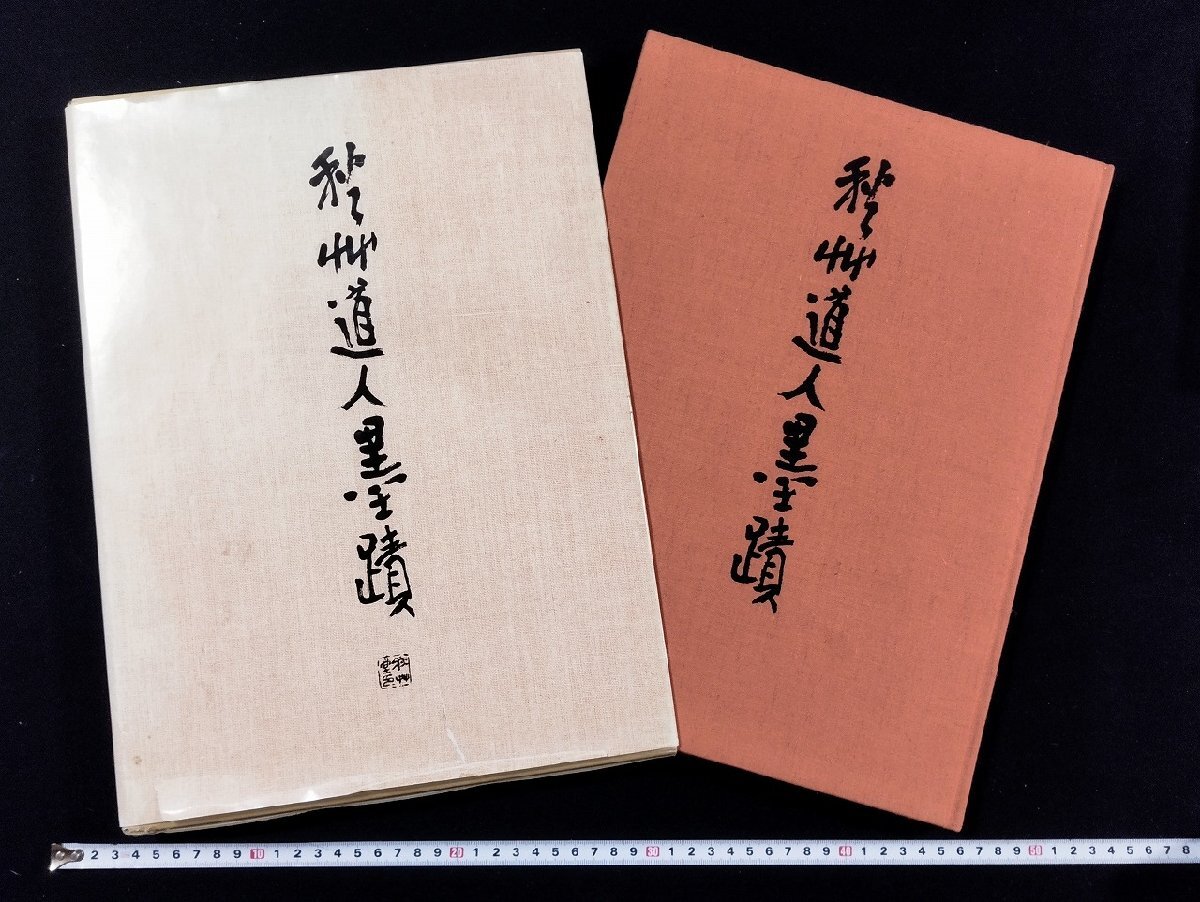 秋艸道人墨蹟
秋艸道人墨蹟
2 3 4 5 6 7 8 9 10 1 2 3 4 5 6 7 8 9 20 1 2 3 4 5 6 7 8 9 30 1 2 3 4 5 6 7 8 9 40 1 2 3 4 5 6 7 8 9 50 1 2 3 4 5 6 7 8